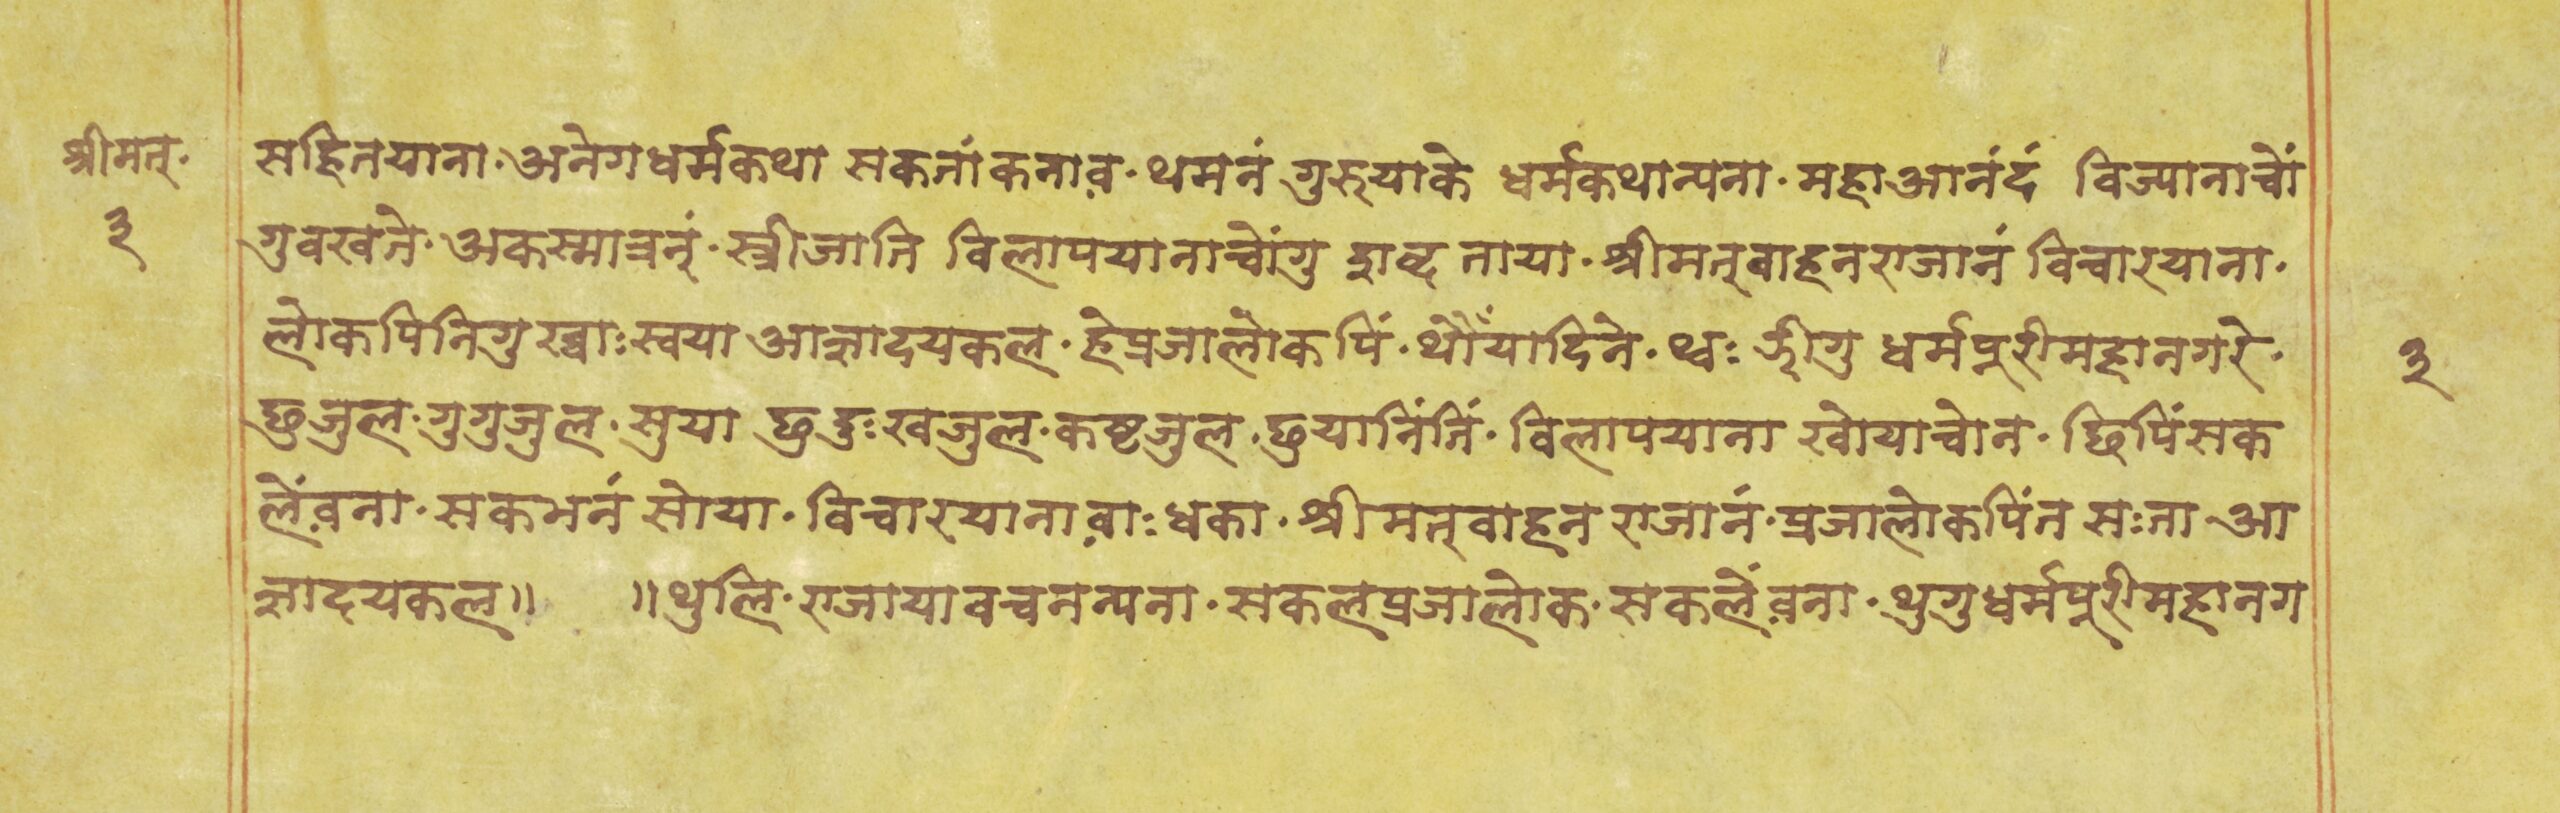 श्रीमत्·
३
सहितयाना·अनेगधर्मकथा सकतांकनाव़·थमनं गुरुयाके धर्मकथान्यना·महाआनंदं विज्यानाचों
गुवखते·अकस्मात्रनं·स्त्रीजाति विलापयानाचोंगु शब्द ताया·श्रीमत्वाहनराजानं विचारयाना·
लोकपिनिगु ख्वाःस्वया आज्ञादयकल·हेप्रजालोकपिं·थौंयादिने·थ्वः झीगु धर्मपुरीमहानगरे·
छुजुल·गुगुजुल·सुया छुदुःखजुल·कष्टजुल·छुयानिंतिं·विलापयाना खोयाचोन·छिपिंसक
लेंव़ना·सकभनं सोया·विचारयानाव़ाःधका·श्रीमत्वाहन राजानं·प्रजालोकपिंन सःता आ
ज्ञादयकल॥ ॥थुलि·राजायावचनन्यना·सकलप्रजालोक·सकलेंव़ना·थुगुधर्मपुरीमहानग
३